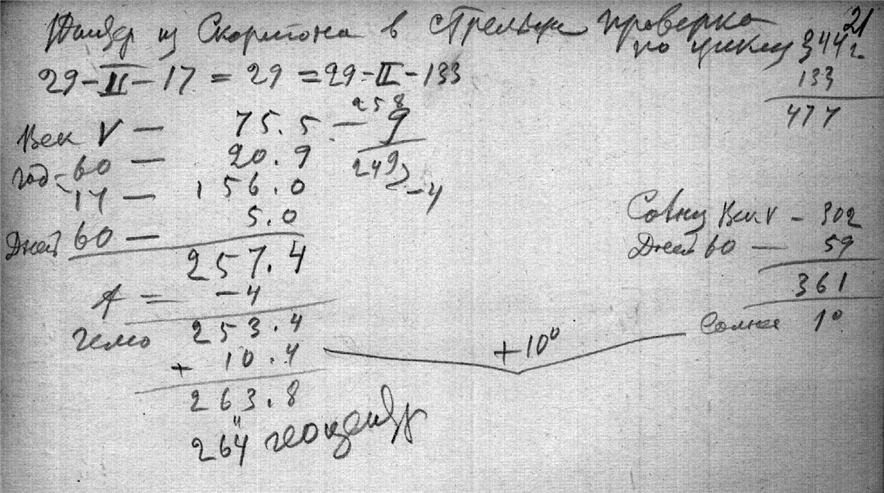 Юпитер из Скорпиона в Стрельце проверка 21
по циклу 344 г.
29-II-17 = 29 = 29-II-133
133
477
258
Век V — 75.5 — 9
год-60 — 20.9 249
17 — 156.0 -4
5.0
Дней 60 —
257.4
A = -4
гелио 253.4
+ 10.4
263.8
"
264 геоцентр
Солнц Век V - 302
Дней 60 — 59
361
Солнце 1°
+10°